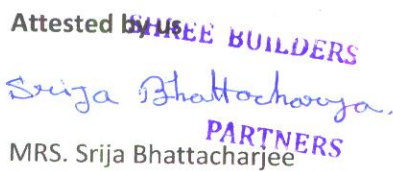 Attested by us
SHREE BUILDERS
Srija Bhattacharya.
PARTNERS
MRS. Srija Bhattacharjee